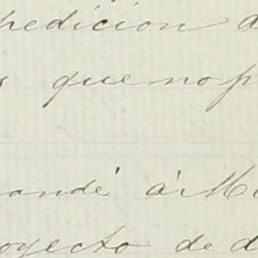 pedicion d
s que no p
andé á M
oyecto de d